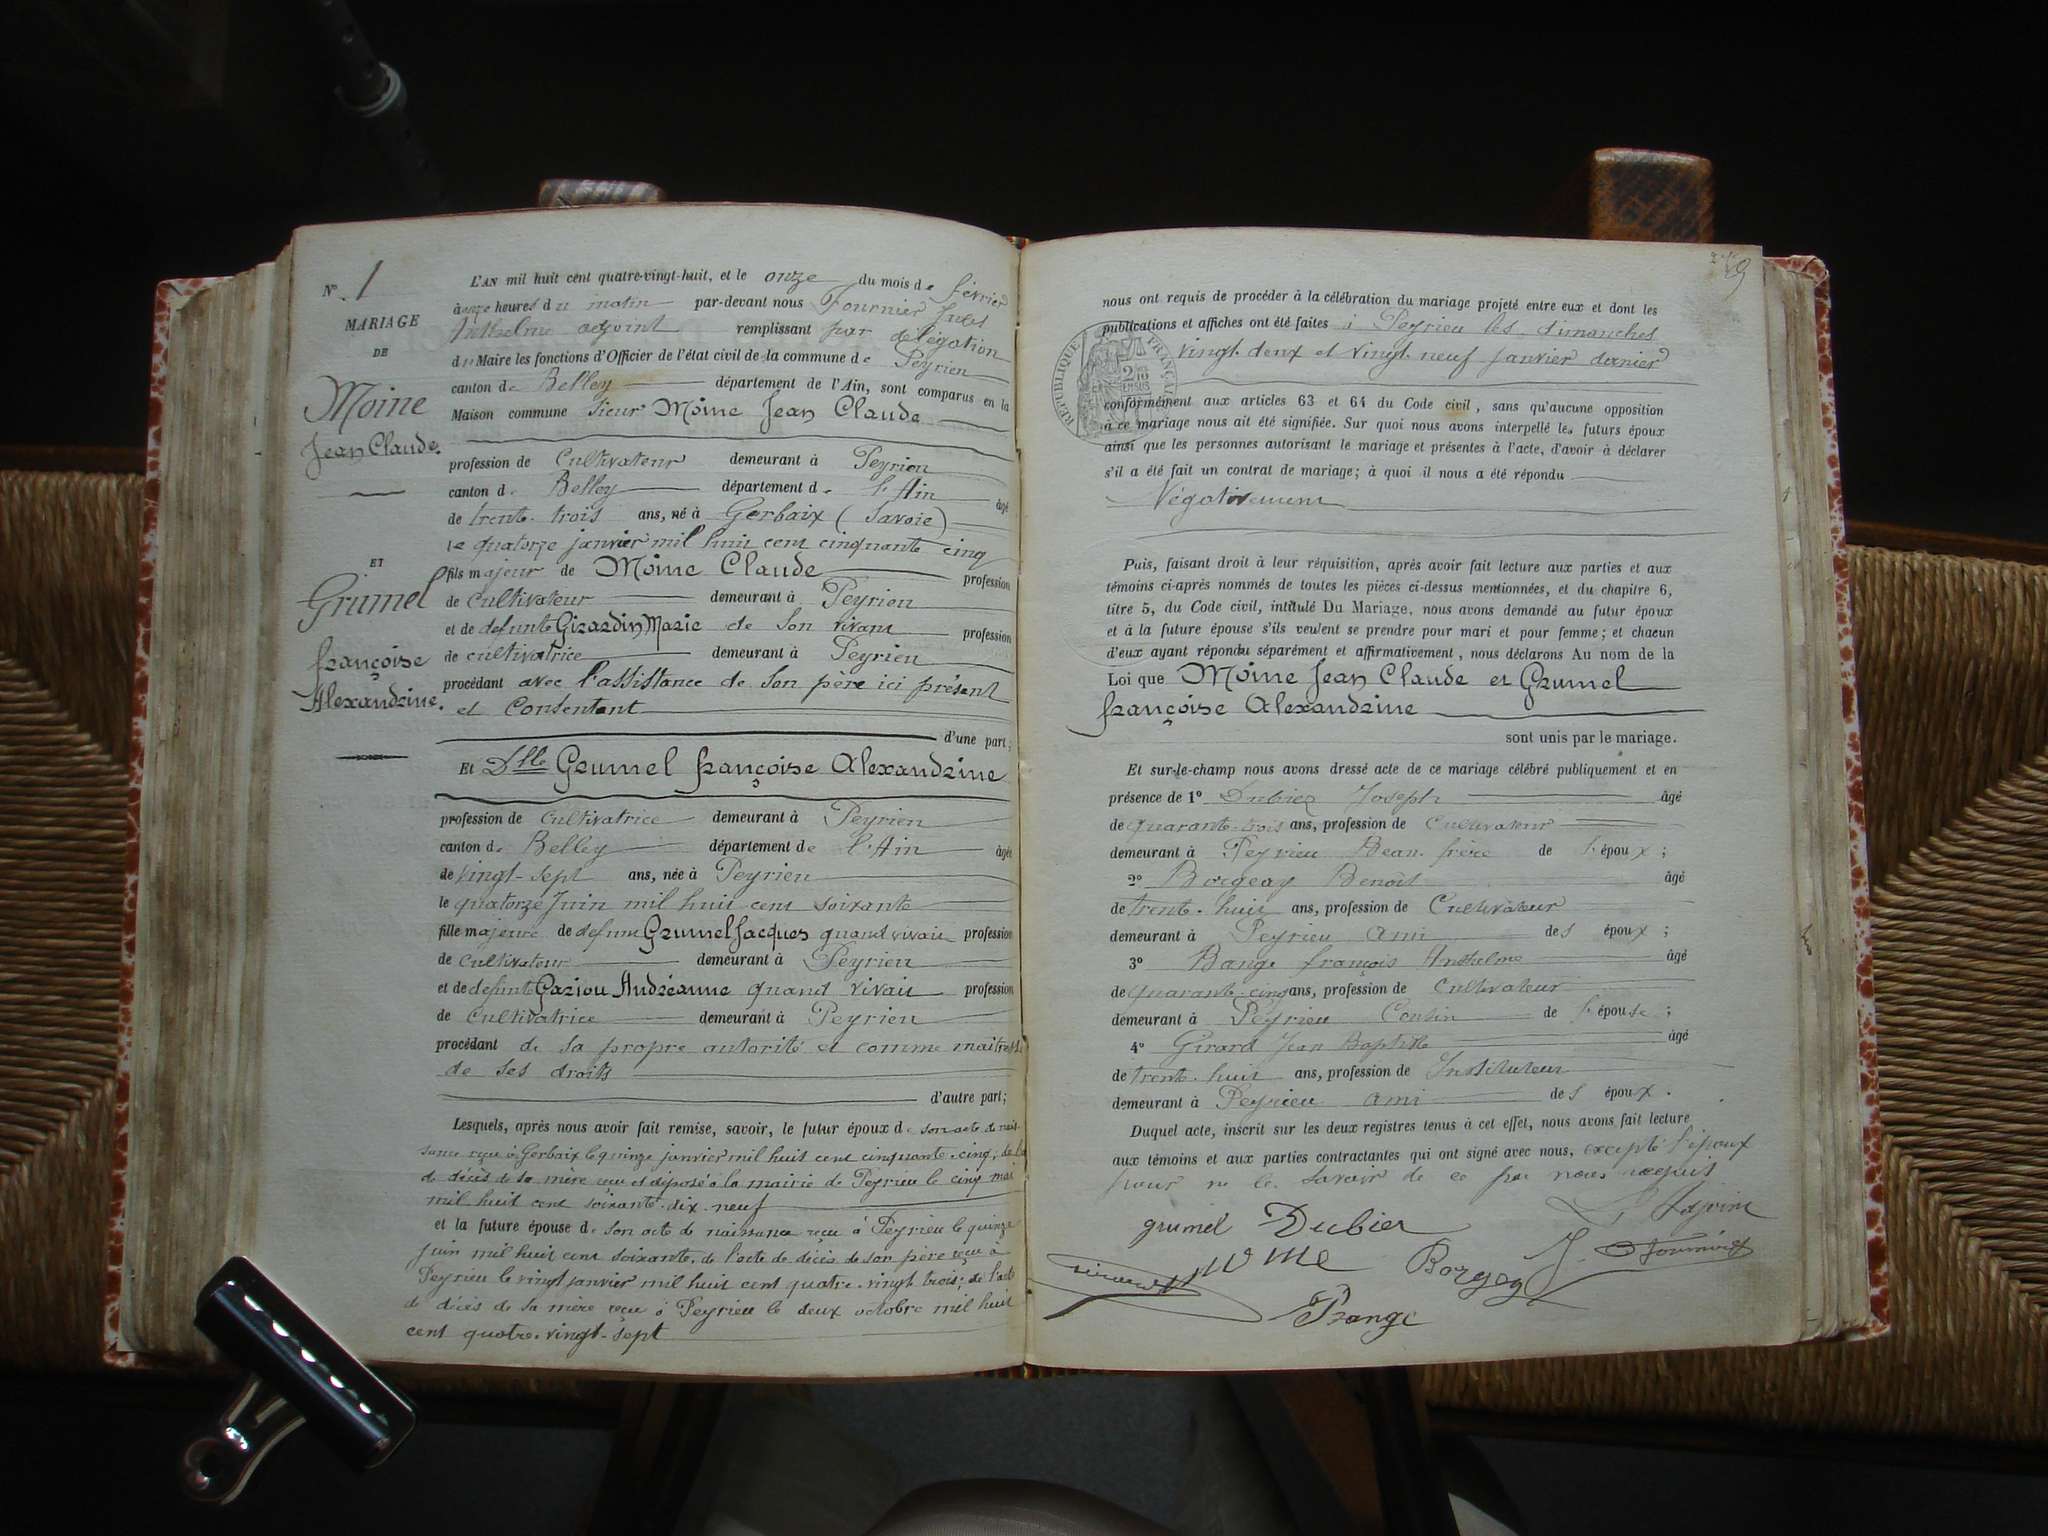 N° 1
MARIAGE
DE
Moine
Jean Claude.
ET
Grumel
françoise
Alexandrine.
L'AN mil huit cent quatre-vingt-huit, et le onze du mois de février
à onze heures du matin par-devant nous Fournier Jules
Anthelme adjoint remplissant par délégation
du Maire les fonctions d'Officier de l'état civil de la commune de Peyrieu
canton de Belley département de l'Ain, sont comparus en la
Maison commune Sieur Moine Jean Claude
profession de Cultivateur demeurant à Peyrieu
canton de Belley département de l'Ain âgé
de trente-trois ans, né à Gerbaix (Savoie)
le quatorze janvier mil huit cent cinquante cinq
fils majeur de Moine Claude profession
de Cultivateur demeurant à Peyrieu
et de defunte Girardin Marie de son vivant profession
de cultivatrice demeurant à Peyrieu
procédant avec l'assistance de son père ici présent
et Consentant
d'une part;
Et Dlle Grumel françoise Alexandrine
profession de Cultivatrice demeurant à Peyrieu
canton de Belley département de l'Ain âgée
de vingt-sept ans, née à Peyrieu
le quatorze Juin mil huit cent soixante
fille majeure de defunt Grumel Jacques quand vivait profession
de Cultivateur demeurant à Peyrieu
et de defunte Pariou Andréanne quand vivait profession
de Cultivatrice demeurant à Peyrieu
procédant de sa propre autorité et comme maitresse
de ses droits
d'autre part;
Lesquels, après nous avoir fait remise, savoir, le futur époux de son acte de nais-
sance reçu à Gerbaix le quinze janvier mil huit cent cinquante-cinq; de
de décès de sa mère reçu et déposé à la mairie de Peyrieu le cinq mai
mil huit cent soixante-dix-neuf
et la future épouse de son acte de naissance reçu à Peyrieu le quinze
juin mil huit cent soixante, de l'acte de décès de son père reçu à
Peyrieu le vingt janvier mil huit cent quatre-vingt trois; de l'acte
de décès de sa mère reçu à Peyrieu le deux octobre mil huit
cent quatre-vingt-sept
nous ont requis de procéder à la célébration du mariage projeté entre eux et dont les
publications et affiches ont été faites à Peyrieu les dimanches
vingt-deux et vingt-neuf janvier dernier
RÉPUBLIQUE FRANÇAISE
conformément aux articles 63 et 64 du Code civil, sans qu'aucune opposition
à ce mariage nous ait été signifiée. Sur quoi nous avons interpellé les futurs époux
ainsi que les personnes autorisant le mariage et présentes à l'acte, d'avoir à déclarer
s'il a été fait un contrat de mariage; à quoi il nous a été répondu
Négativement
Puis, faisant droit à leur réquisition, après avoir fait lecture aux parties et aux
témoins ci-après nommés de toutes les pièces ci-dessus mentionnées, et du chapitre 6,
titre 5, du Code civil, intitulé Du Mariage, nous avons demandé au futur époux
et à la future épouse s'ils veulent se prendre pour mari et pour femme; et chacun
d'eux ayant répondu séparément et affirmativement, nous déclarons Au nom de la
Loi que Moine Jean Claude et Grumel
françoise Alexandrine
sont unis par le mariage.
Et sur-le-champ nous avons dressé acte de ce mariage célébré publiquement et en
présence de 1° Dubier Joseph âgé
de quarante-trois ans, profession de Cultivateur
demeurant à Peyrieu Beau-frère de l'époux;
2° Borgey Benoît âgé
de trente-huit ans, profession de Cultivateur
demeurant à Peyrieu ami des époux;
3° Bange françois Anthelme âgé
de quarante-cinq ans, profession de Cultivateur
demeurant à Peyrieu Cousin de l'épouse;
4° Girard Jean Baptiste âgé
de trente-huit ans, profession de Instituteur
demeurant à Peyrieu ami des époux.
Duquel acte, inscrit sur les deux registres tenus à cet effet, nous avons fait lecture
aux témoins et aux parties contractantes qui ont signé avec nous, excepté l'époux
pour ne le savoir de ce par nous requis
grumel Dubier L'Adjoint
Borgey J. Fournier
Bange